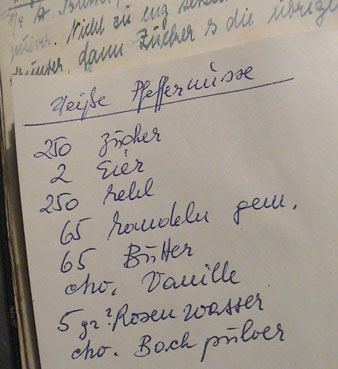 pulver. Nicht zu eng
dann Zucker & die übrige
Weiße Pfeffernüsse
250 Zucker
2 Eier
250 Mehl
65 Mandeln gem.
65 Butter
cho. Vanille
5 gr? Rosenwasser
cho. Backpulver